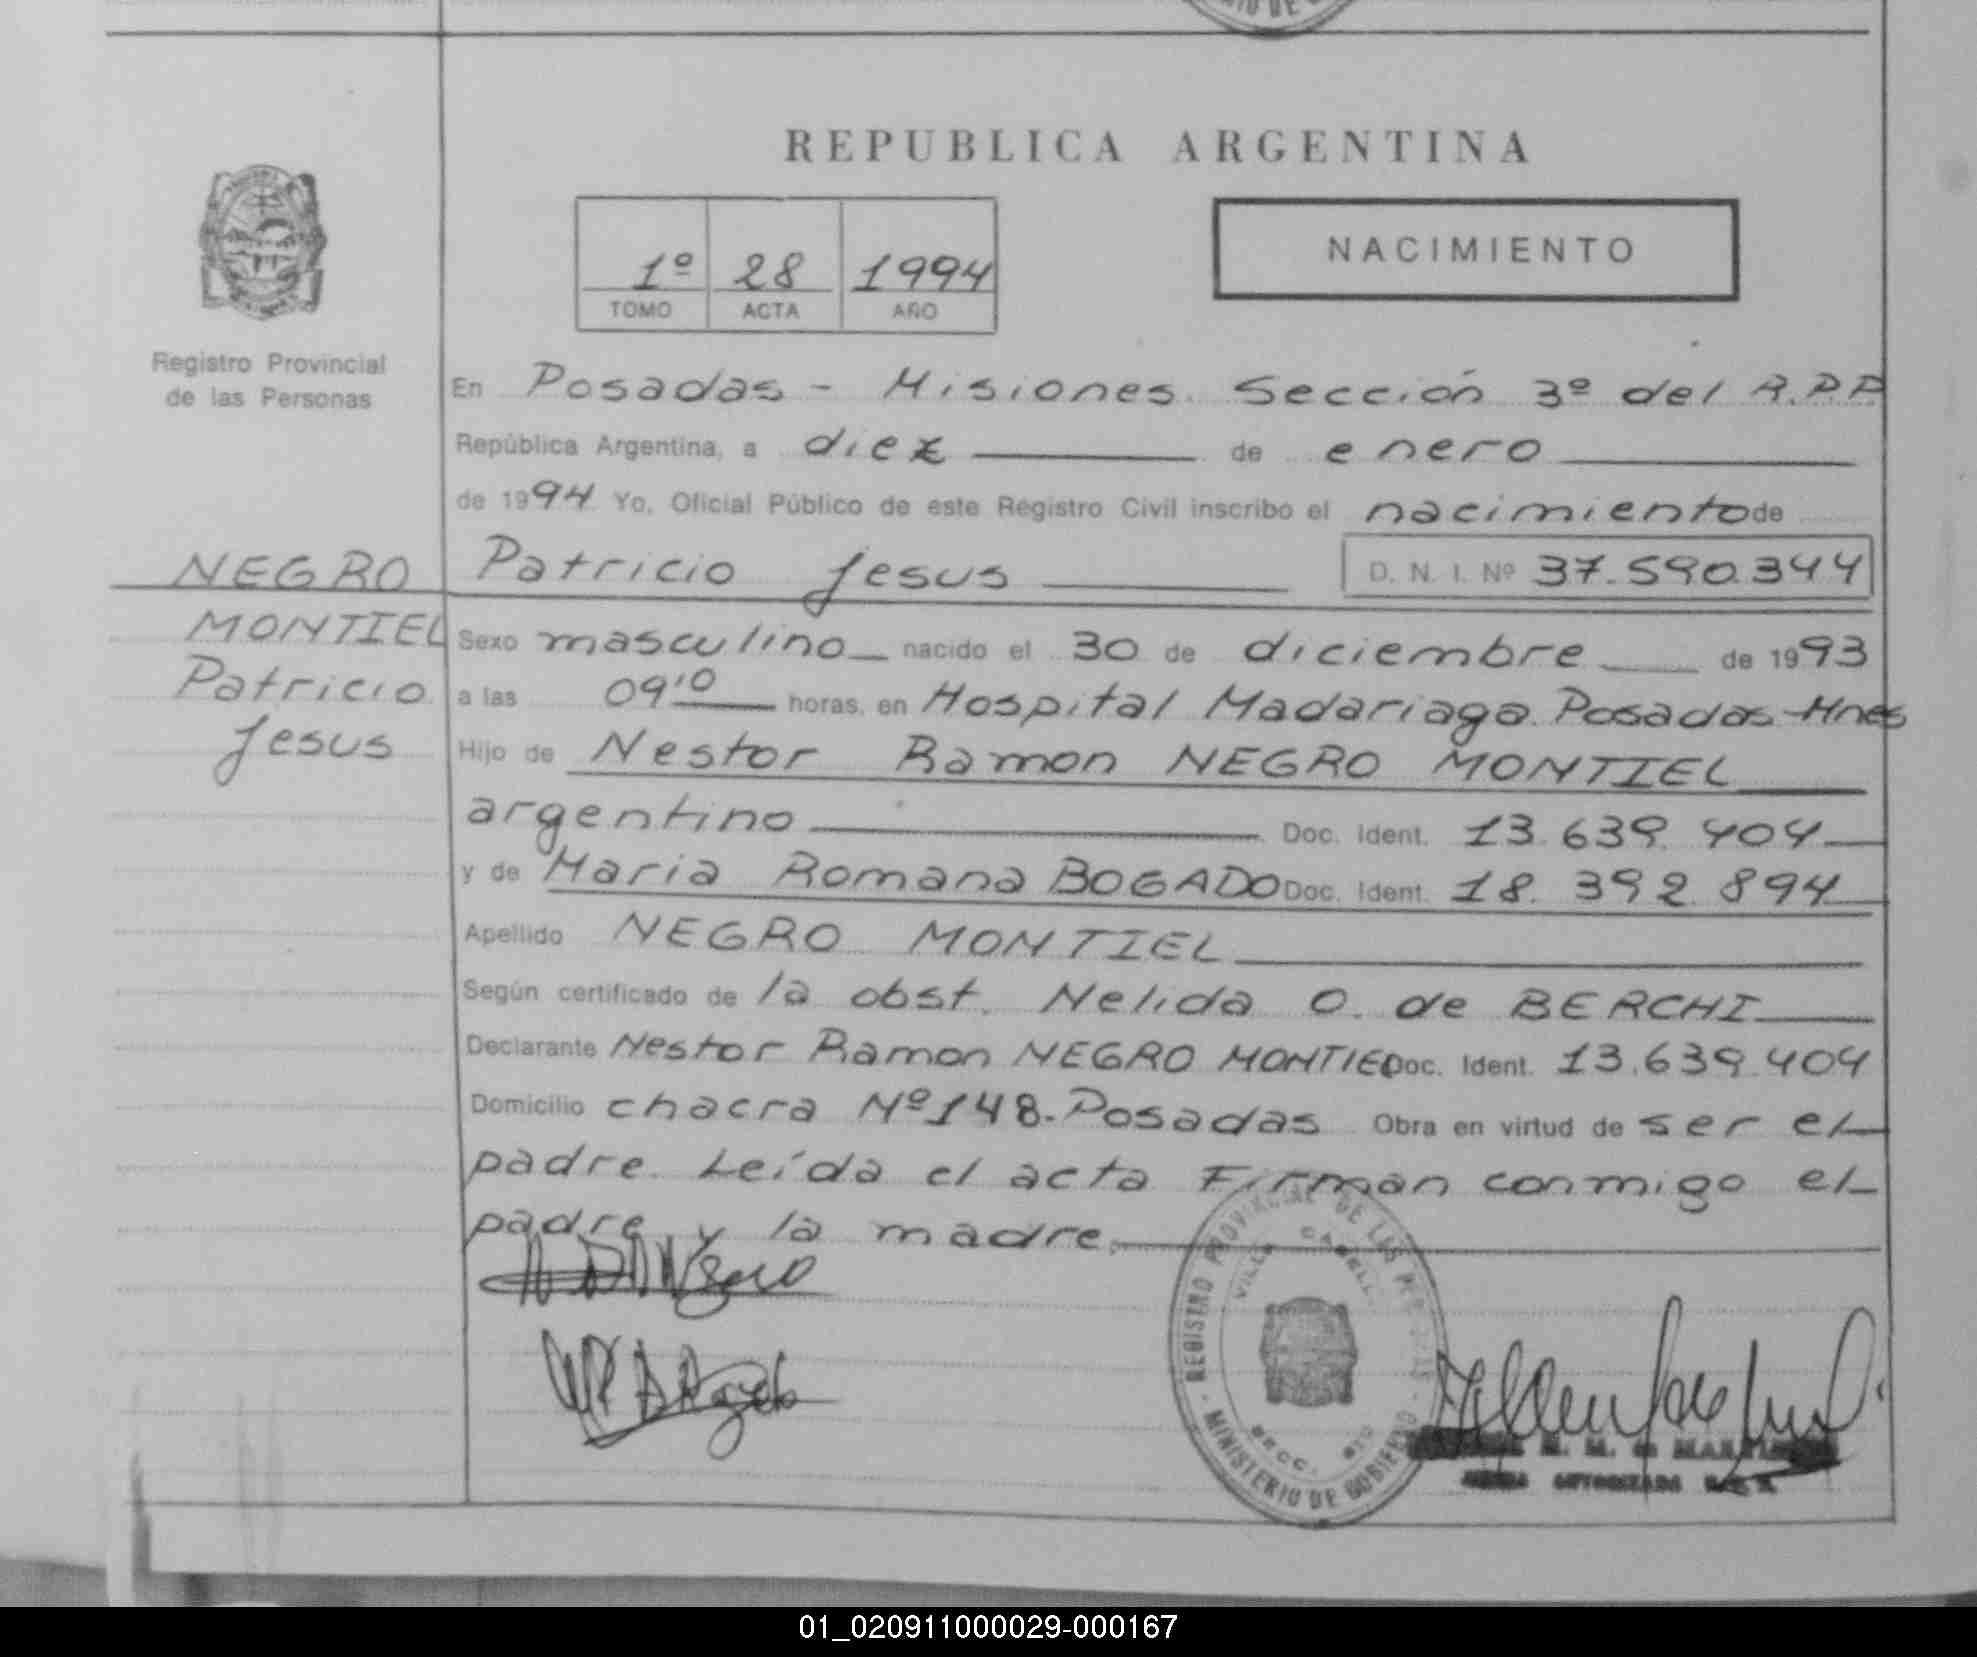 REPUBLICA ARGENTINA
1º 28 1994
TOMO ACTA AÑO
NACIMIENTO
Registro Provincial
de las Personas
NEGRO
MONTIEL
Patricio
Jesus
En Posadas - Misiones. Sección 3º del R.P.P
República Argentina, a diez de enero
de 1994 Yo, Oficial Público de este Registro Civil inscribo el nacimiento de
Patricio Jesus D. N. I. Nº 37.590.344
Sexo masculino nacido el 30 de diciembre de 1993
a las 09'10 horas, en Hospital Madariaga. Posadas-Mnes
Hijo de Nestor Ramon NEGRO MONTIEL
argentino Doc. Ident. 13.639.404
y de Maria Romana BOGADO Doc. Ident. 18.392.894
Apellido NEGRO MONTIEL
Según certificado de la obst. Nelida O. de BERCHI
Declarante Nestor Ramon NEGRO MONTIEL Doc. Ident. 13.639.404
Domicilio chacra Nº148.-Posadas Obra en virtud de ser el
padre. Leída el acta Firman conmigo el
padre y la madre.
REGISTRO PROVINCIAL DE LAS
VILLA CABELL
SECC.
MINISTERIO DE GOBIERNO
01_020911000029-000167